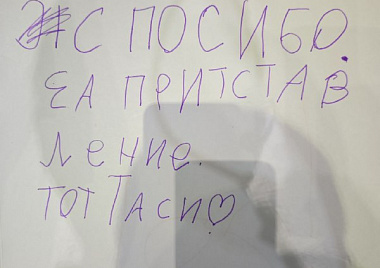 СПОСИБО.
ЕА ПРИТСТАВ
ЛЕНИЕ.
ТОТ ТАСИ♡